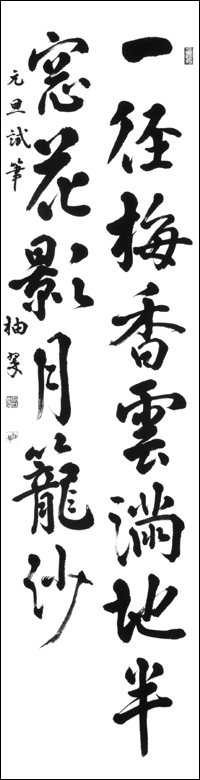 一径梅香雲満地半
窓花影月籠沙
元旦試筆 柚翠